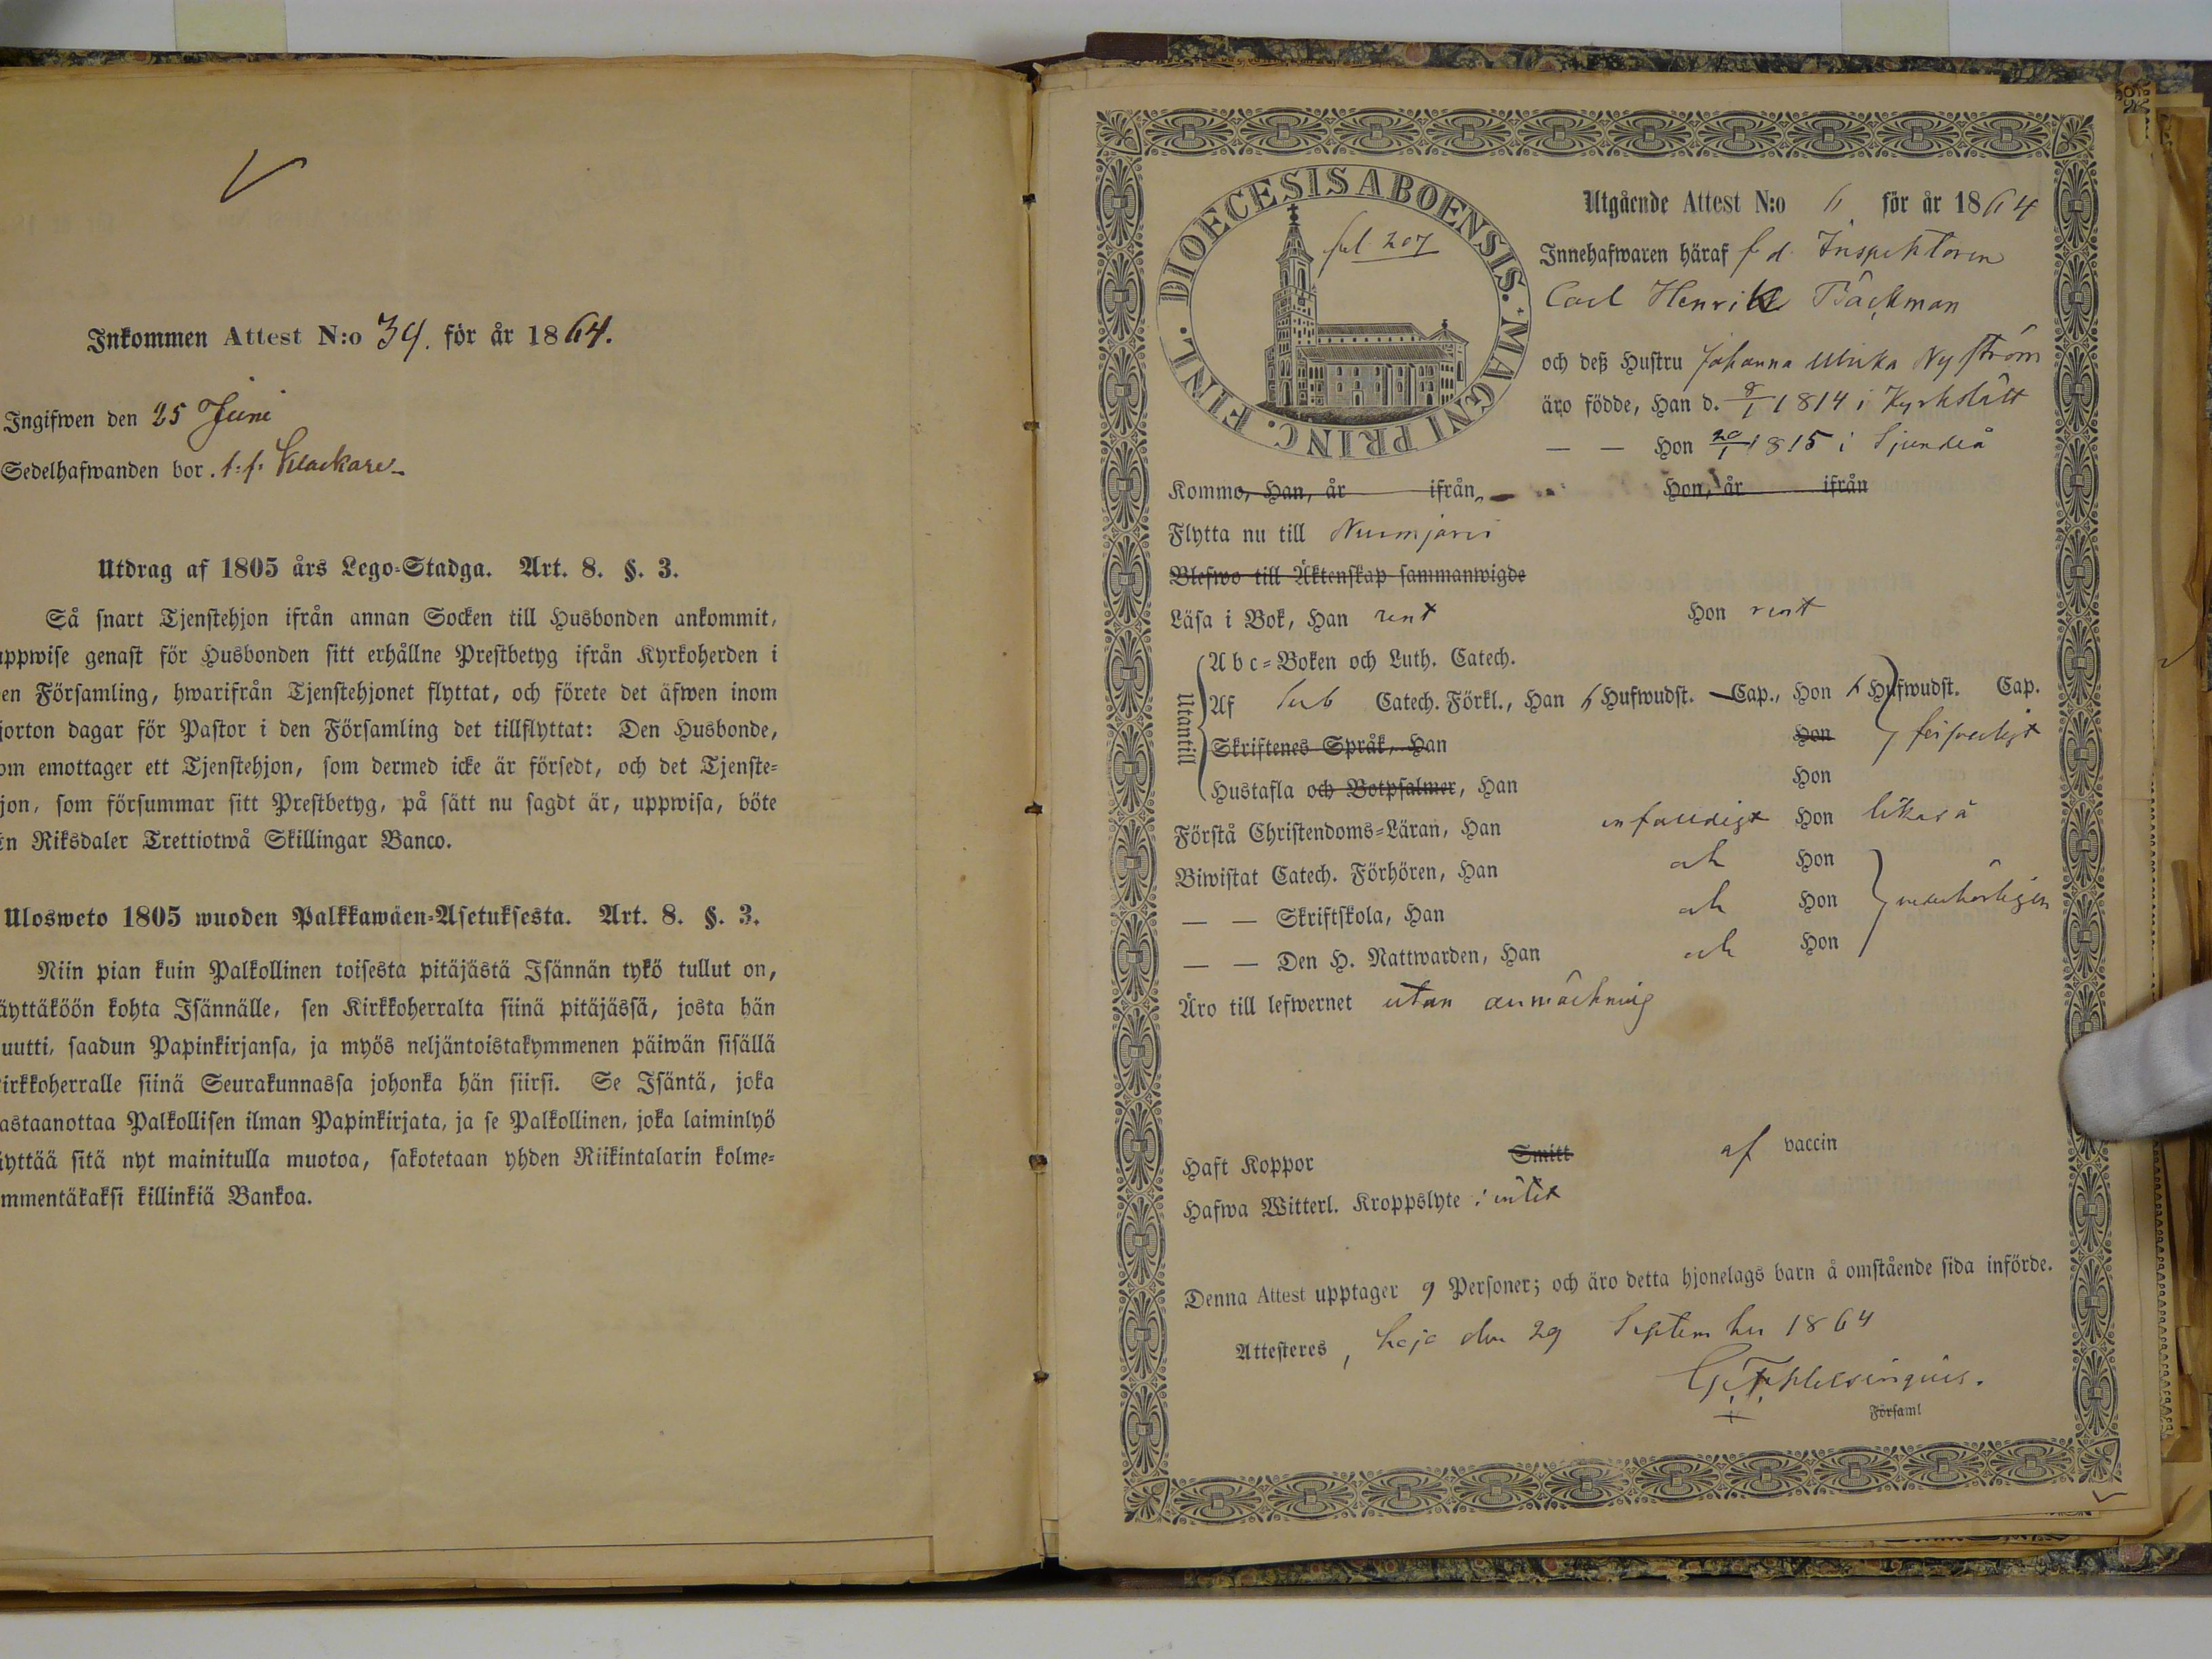 Inkommen Attest N:o 39. för år 1864.
Ingifwen den 25 Juni
Sedelhafwanden bor
Utdrag af 1805 års Lego-Stadga. Art. 8. §. 3.
Så snart Tjenstehjon ifrån annan Socken till Husbonden ankommit,
uppwise genast för Husbonden sitt erhållne Prestbetyg ifrån Kyrkoherden i
en Församling, hwarifrån Tjenstehjonet flyttat, och förete det äfwen inom
jorton dagar för Pastor i den Församling det tillflyttat: Den Husbonde,
om emottager ett Tjenstehjon, som dermed icke är försedt, och det Tjenste-
jon, som försummar sitt Prestbetyg, på sätt nu sagdt är, uppwisa, böte
En Riksdaler Trettiotwå Skillingar Banco.
Ulosweto 1805 wuoden Palkkawäen-Asetuksesta. Art. 8. §. 3.
Niin pian kuin Palkollinen toisesta pitäjästä Isännän tykö tullut on,
äyttäköön kohta Isännälle, sen Kirkkoherralta siinä pitäjässä, josta hän
uutti, saadun Papinkirjansa, ja myös neljäntoistakymmenen päiwän sisällä
irkkoherralle siinä Seurakunnassa johonka hän siirsi. Se Isäntä, joka
astaanottaa Palkollisen ilman Papinkirjata, ja se Palkollinen, joka laiminlyö
äyttää sitä nyt mainitulla muotoa, sakotetaan yhden Riikintalarin kolme-
mmentäkaksi killinkiä Bankoa.
DIOECESIS ABOENSIS. MAGNI PRINC. FINL.
fol 207
Utgående Attest N:o 6 för år 1864
Innehafwaren häraf f d. Inspektoren
Carl Henrik Bäckman
och deß Hustru Johanna Ulrika Nyström
äro födde, Han d. 9/1 1814 i Kyrkslätt
— — Hon 20/1 1815 i Sjundeå
Kommo, Han, år ifrån Hon, år ifrån
Flytta nu till Nurmijärvi
Blefwo till Äktenskap sammanwigde
Läsa i Bok, Han rent Hon rent
Utantill
Abc-Boken och Luth. Catech.
Af Catech. Förkl., Han 6 Hufwudst. — Cap., Hon 6 Hufwudst. Cap.
Skriftenes Språk, Han Hon försvarligt
Hustafla och Botpsalmer, Han Hon
Förstå Christendoms-Läran, Han enfaldigt Hon likaså
Biwistat Catech. Förhören, Han och Hon
— — Skriftskola, Han och Hon vederbörligen
— — Den H. Nattwarden, Han och Hon
Äro till lefwernet utan anmärkning
Haft Koppor Smitt af vaccin
Hafwa Witterl. Kroppslyte : intet
Denna Attest upptager 9 Personer; och äro detta hjonelags barn å omstående sida införde.
Attesteres, Lojo den 29 September 1864
Församl